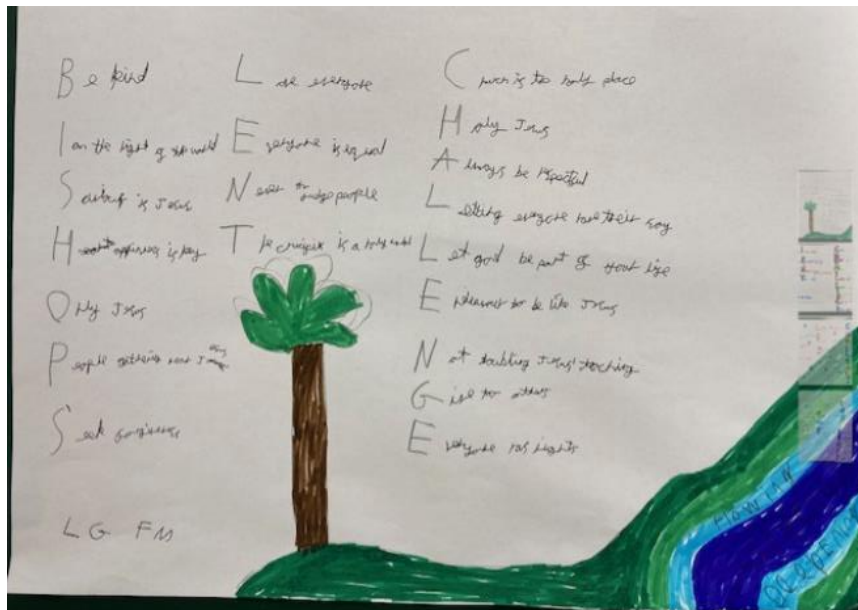 Be kind
I am the light of the world
Saviour is Jesus
Happiness is key
Only Jesus
People gathering near Jesus
Seek forgiveness
Love everyone
Everyone is equal
Never judge people
The crucifix is a holy
Church is the holy place
Holy Jesus
Always be respectful
Letting everyone have their say
Let god be part of your life
Endeavour to be like Jesus
Not doubting Jesus' teaching
Give to others
Everyone has rights
LG FM
Flowing